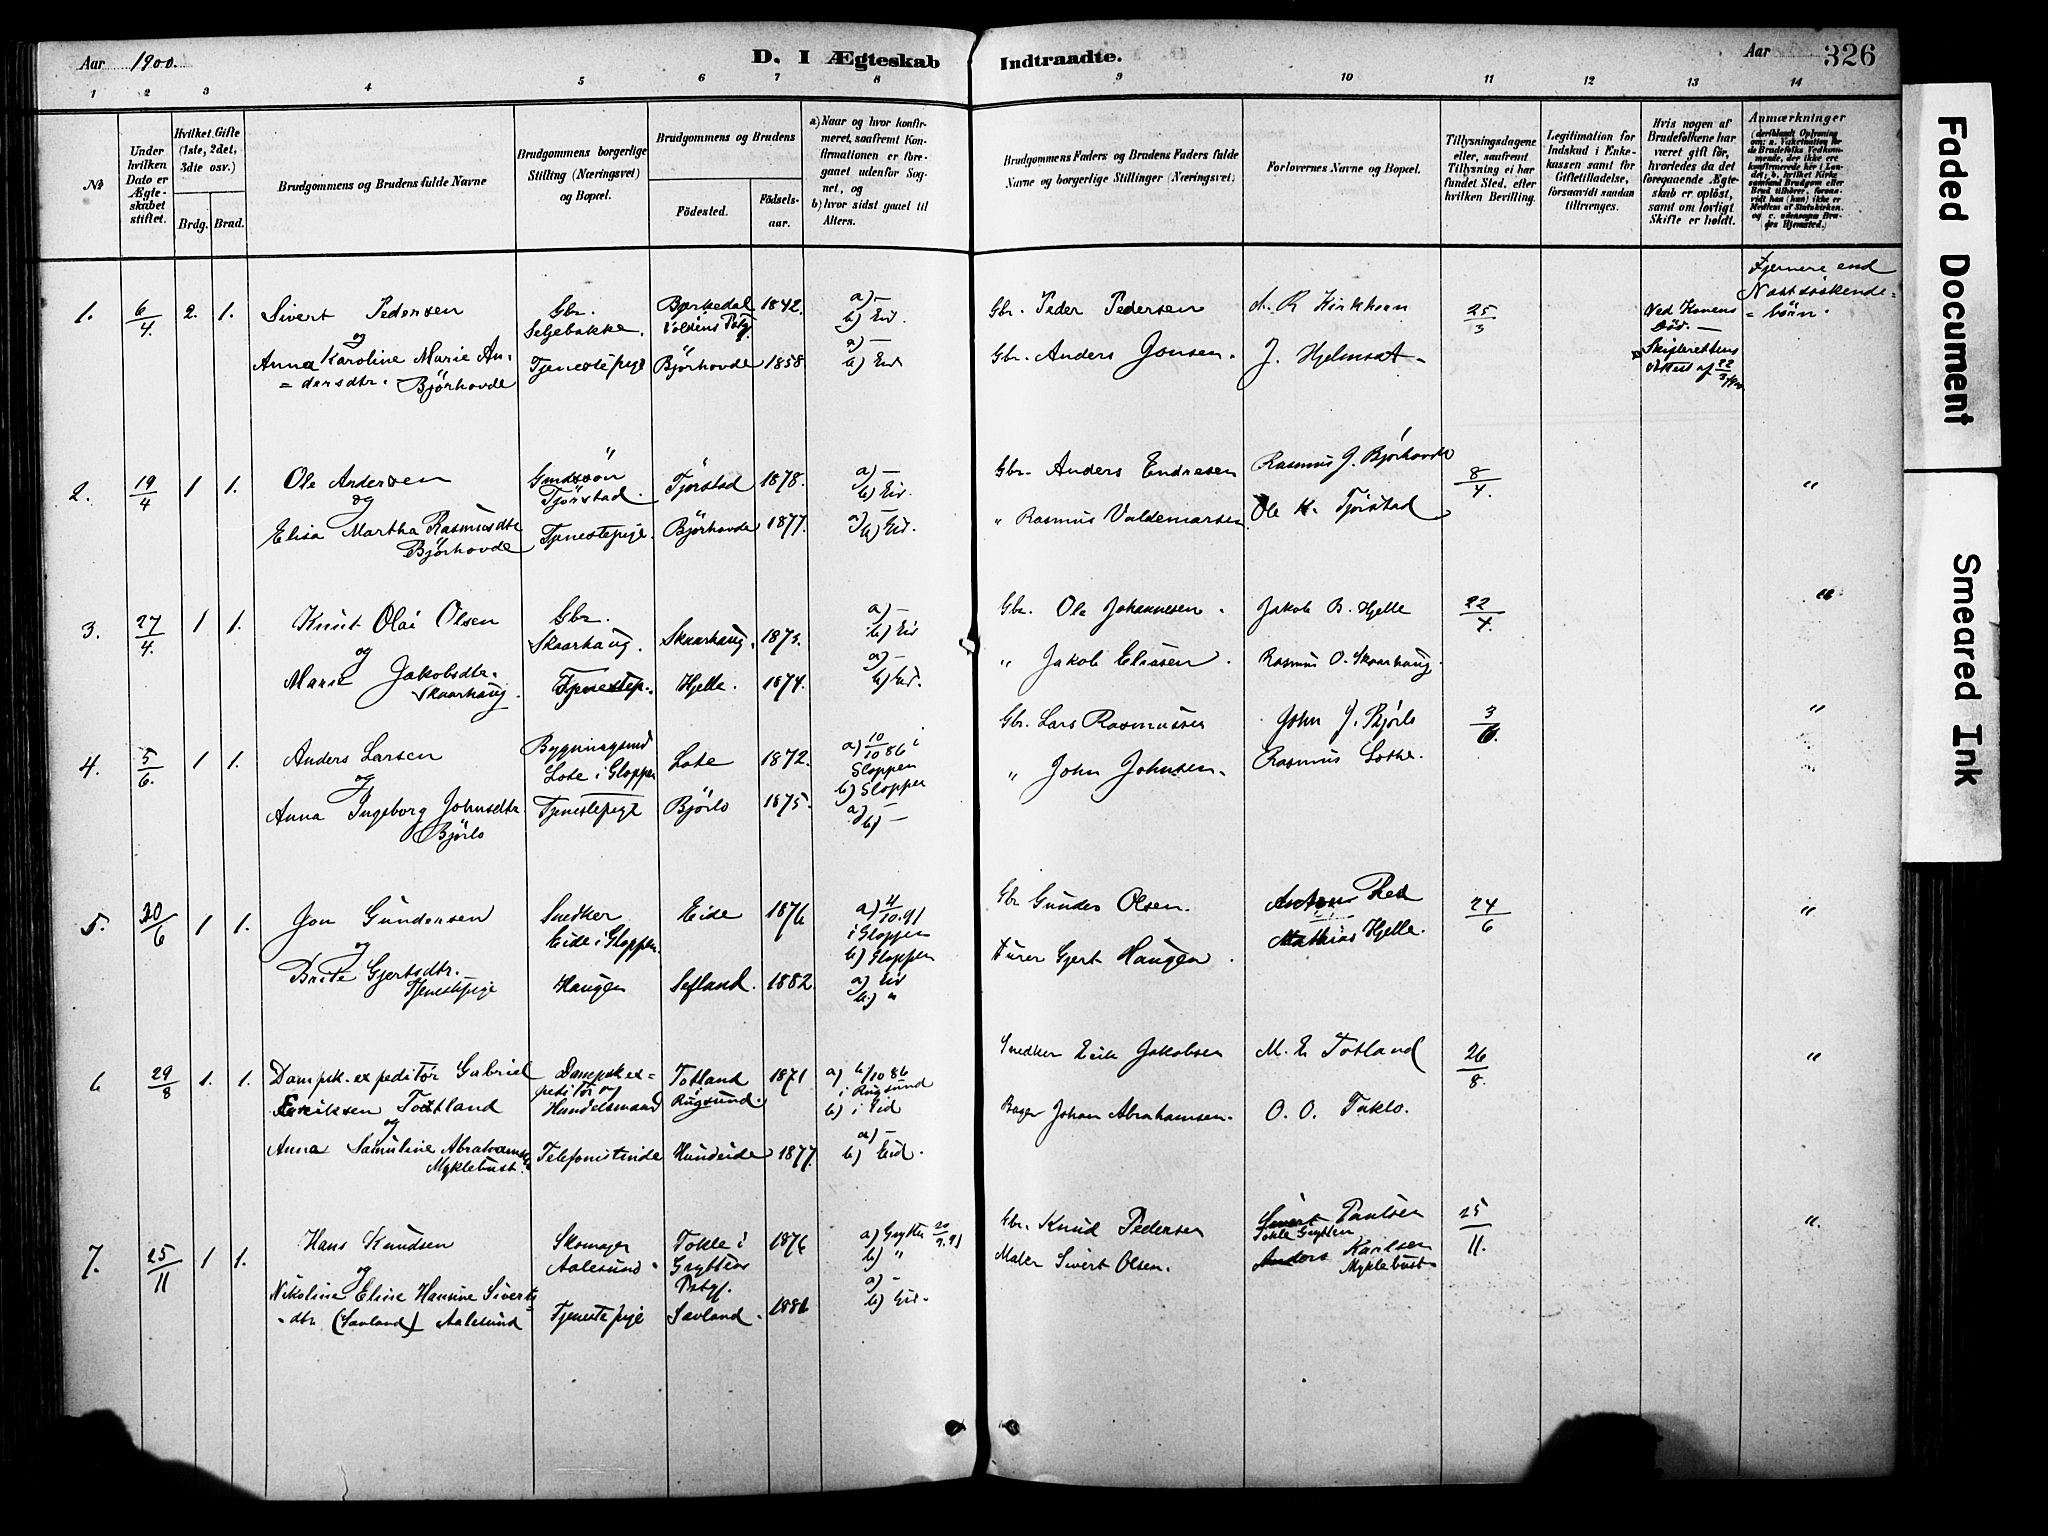 Aar 1900.
D. I Ægteskab Indtraadte.
Aar 326
1 2 3 4 5 6 7 8 9 10 11 12 13 14
№
Under hvilken Dato er Ægteskabet stiftet.
Hvilket Gifte (1ste, 2det, 3die osv.)
Brdg. Brud.
Brudgommens og Brudens fulde Navne
Brudgommens borgerlige Stilling (Næringsvei) og Bopæl.
Brudgommens og Brudens
Födested.
Födsels-aar.
a) Naar og hvor konfirmeret, saafremt Konfirmationen er foregaaet udenfor Sognet, og
b) hvor sidst gaaet til Alters.
Brudgommens Faders og Brudens Faders fulde Navne og borgerlige Stillinger (Næringsvei)
Forlovernes Navne og Bopæl.
Tillysningsdagene eller, saafremt Tillysning ei har fundet Sted, efter hvilken Bevilling.
Legitimation for Indskud i Enkekassen samt for Giftetilladelse, forsaavidt saadan tiltrænges.
Hvis nogen af Brudefolkene har været gift för, hvorledes da det foregaaende Ægteskab er oplöst, samt om lovligt Skifte er holdt.
Anmærkninger
1. 6/4. 2. 1. Sivert Pedersen Gbr. Seljebakke. Bjørkedal Voldens Pstg. 1842. a) – b) Eid. Gbr. Peder Pedersen A. R. Kirkhorn 25/3 Ved Konens Død. – Skifterettens Attest af 22/3 Fjernere end Næstsøskende= =børn.
og
Anna Karoline Marie An= =dersdtr. Bjørhovde Tjenestepige Bjørhovde 1858 a) – b) Eid Gbr. Anders Jonsen. J. Hjelmset
2. 19/4 1 1. Ole Andersen Gmdssøn Tjørstad. Tjørstad 1878. a) – b) Eid. Gbr. Anders Endresen Rasmus J. Bjørhovde 8/4. "
og
Elisa Martha Rasmusdtr Bjørhovde Tjenestepige. Bjørhovde 1877. a) – b) Eid. " Rasmus Valdemarsen Ole K. Tjørstad
3. 27/4. 1 1. Knut Olai Olsen Gbr. Skaarhaug. Skaarhaug. 1873. a) – b) Eid Gbr. Ole Johannesen. Jakob B. Hjelle 22/4. "
og
Marie Jakobsdtr. Skaarhaug. Tjenestep. Hjelle. 1874. a) – b) Eid. " Jakob Eliasen. Rasmus O. Skaarhaug.
4. 5/6. 1 1. Anders Larsen Bygningssnd Lote i Gloppen Lote 1872. a) 10/10 86 i Gloppen b) Gloppen Gbr. Lars Rasmussen John J. Bjørlo 3/6. "
og
Anna Ingeborg Johnsdtr. Bjørlo Tjenestepige Bjørlo 1875. a) b) – " John Johnsen. Rasmus Lothe.
5. 30/6 1 1. Jon Gundersen Snedker Eide i Gloppen. Eide 1876 a) 4/10.91 i Gloppen b) Gloppen Gbr Gunder Olsen. Mathias Hjelle. 24/6 "
og
Brite Gjertsdtr. Tjenestepige Haugen Sefland. 1882 a) Eid b) " Murer Gjert Haugen.
6 29/8 1. 1. Dampsk.expeditør Gabriel Eeriksen Totland Dampskex= peditør og Handelsmand Totland Rugsund. 1871 a) 6/10 86 i Rugsund b) i Eid Snedker Erik Jakobsen M. E. Totland 26/8. "
og
Anna Samuline Abrahamsd. Myklebust. Telefonistinde Hundeide 1877. a) – b) Eid. Bager Johan Abrahamsen. O. O. Taklo.
7. 25/11 1 1. Hans Knudsen Skomager Aalesund. Tokle i Grytten Pstgj. 1876 a) Grytten 20/9.91 b) " Gbr. Knud Pedersen Sivert Paulsen Tokle Grytten 25/11. "
og
Nikoline Eline Hansine Siverts= =dtr (Savland) Aalesund Tjenestepige Savland. 1881 a) – b) Eid. Maler Sivert Olsen. Anders Karlsen Myklebust
Faded Document
Smeared Ink